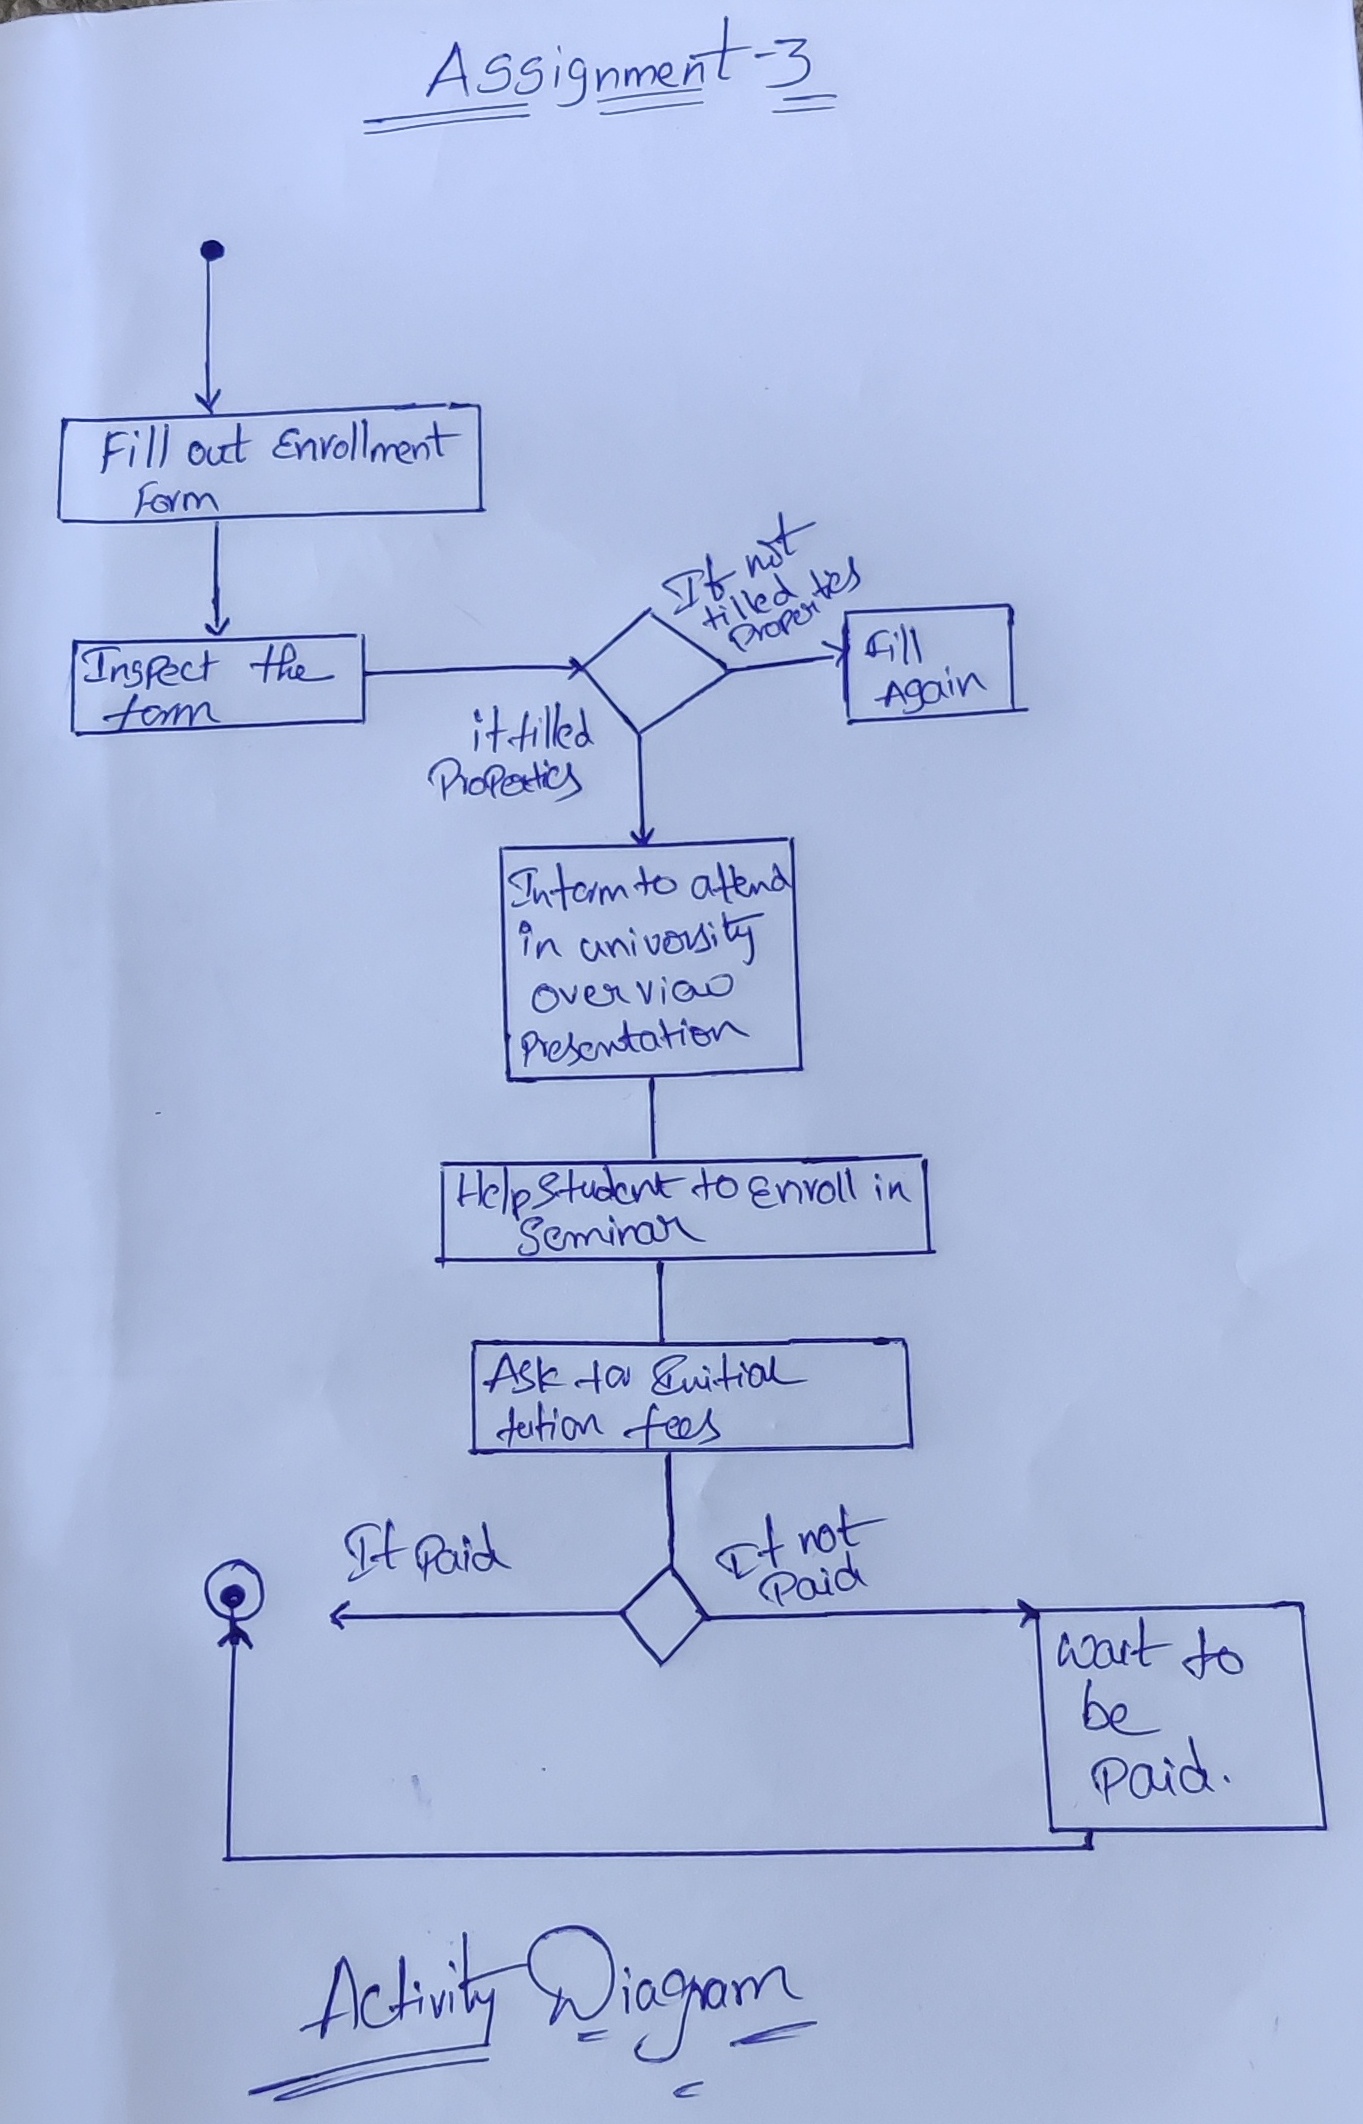 Assignment-3
Fill out Enrollment
Form
Inspect the
form
If not
filled
Properties
Fill
Again
if filled
Properties
Inform to attend
in university
overview
Presentation
Help Student to Enroll in
Seminar
Ask for Initial
tution fees
If Paid
If not
Paid
Wait to
be
Paid.
Activity Diagram